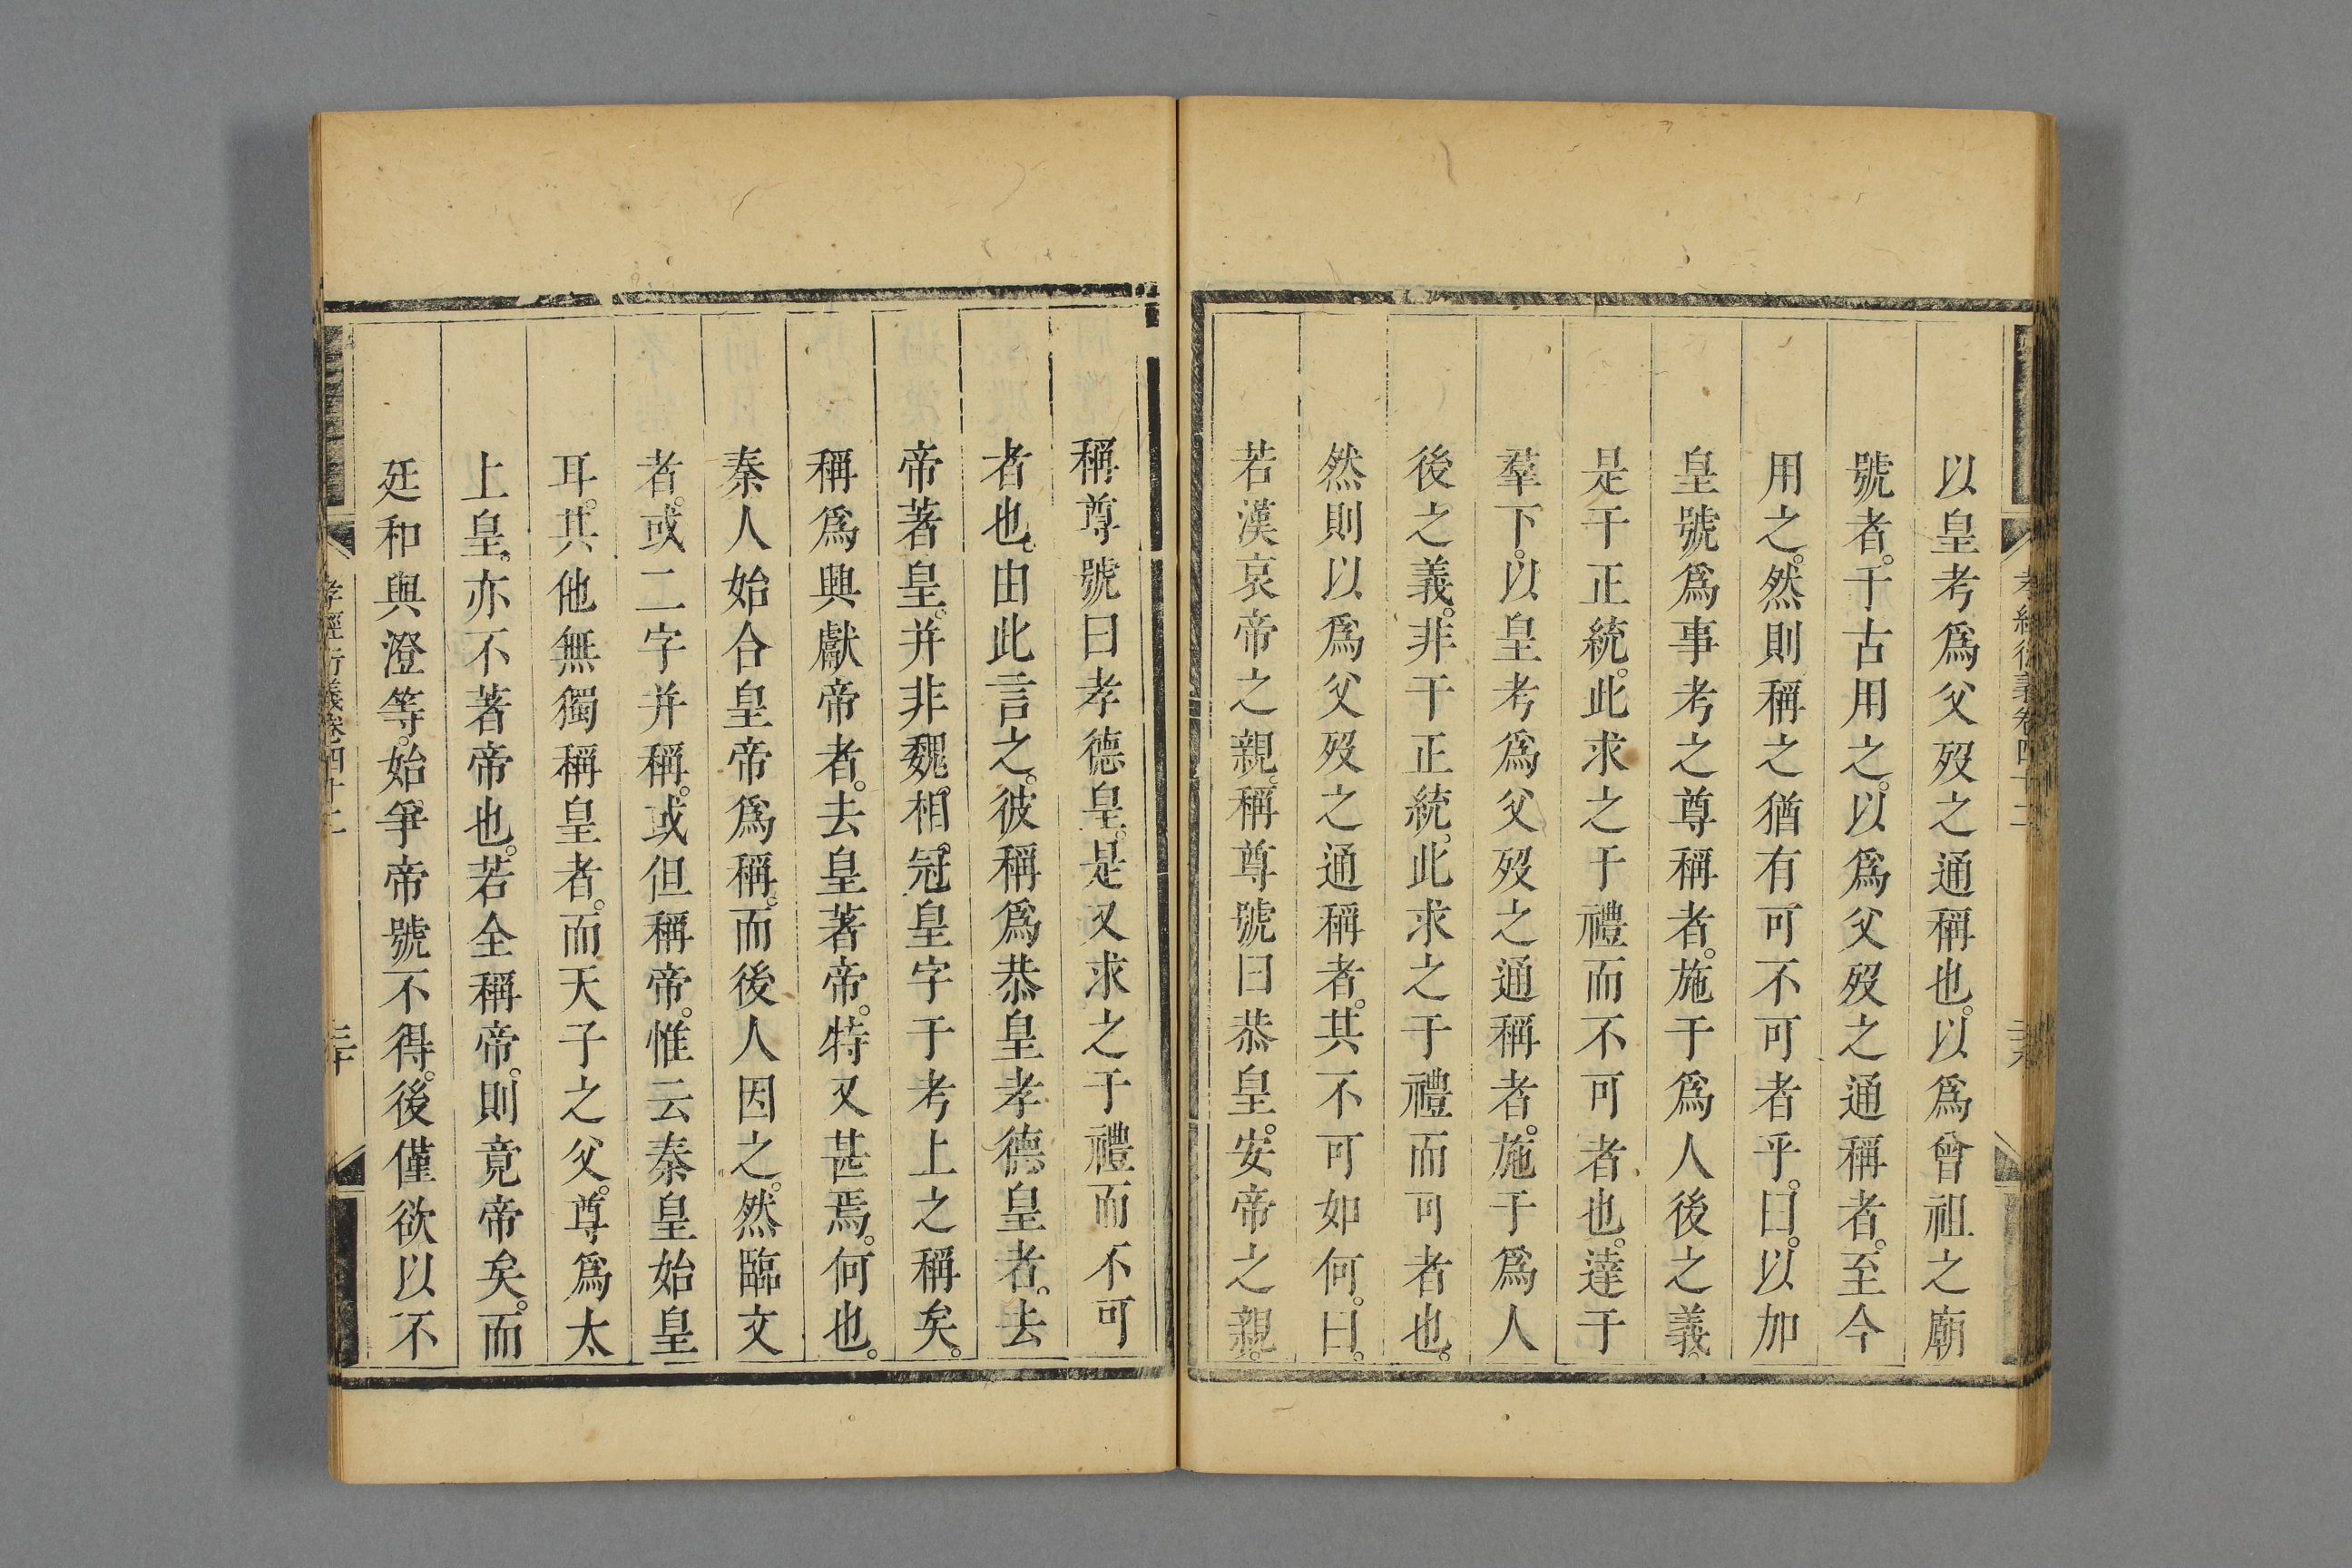 以皇考爲父歿之通稱也。以爲曾祖之廟
號者。干古用之。以爲父歿之通稱者。至今
用之。然則稱之猶有可不可者乎。曰。以加
皇號爲事考之尊稱者。施于爲人後之義。
是干正統。此求之于禮而不可者也。達于
羣下。以皇考爲父歿之通稱者。施于爲人
後之義。非干正統。此求之于禮而可者也。
然則以爲父歿之通稱者。其不可如何。曰。
若漢哀帝之親。稱尊號曰恭皇。安帝之親。
稱尊號曰孝德皇。是又求之于禮而不可
者也。由此言之。彼稱爲恭皇孝德皇者。去
帝著皇。并非魏。相。冠皇字于考上之稱矣。
稱爲興獻帝者。去皇著帝。特又甚焉。何也。
秦人始合皇帝爲稱。而後人因之。然臨文
者。或二字并稱。或但稱帝。惟云秦皇始皇
耳。其他無獨稱皇者。而天子之父。尊爲太
上皇。亦不著帝也。若全稱帝。則竟帝矣。而
廷和與澄等。始爭帝號不得。後僅欲以不
孝經衍義卷四十二